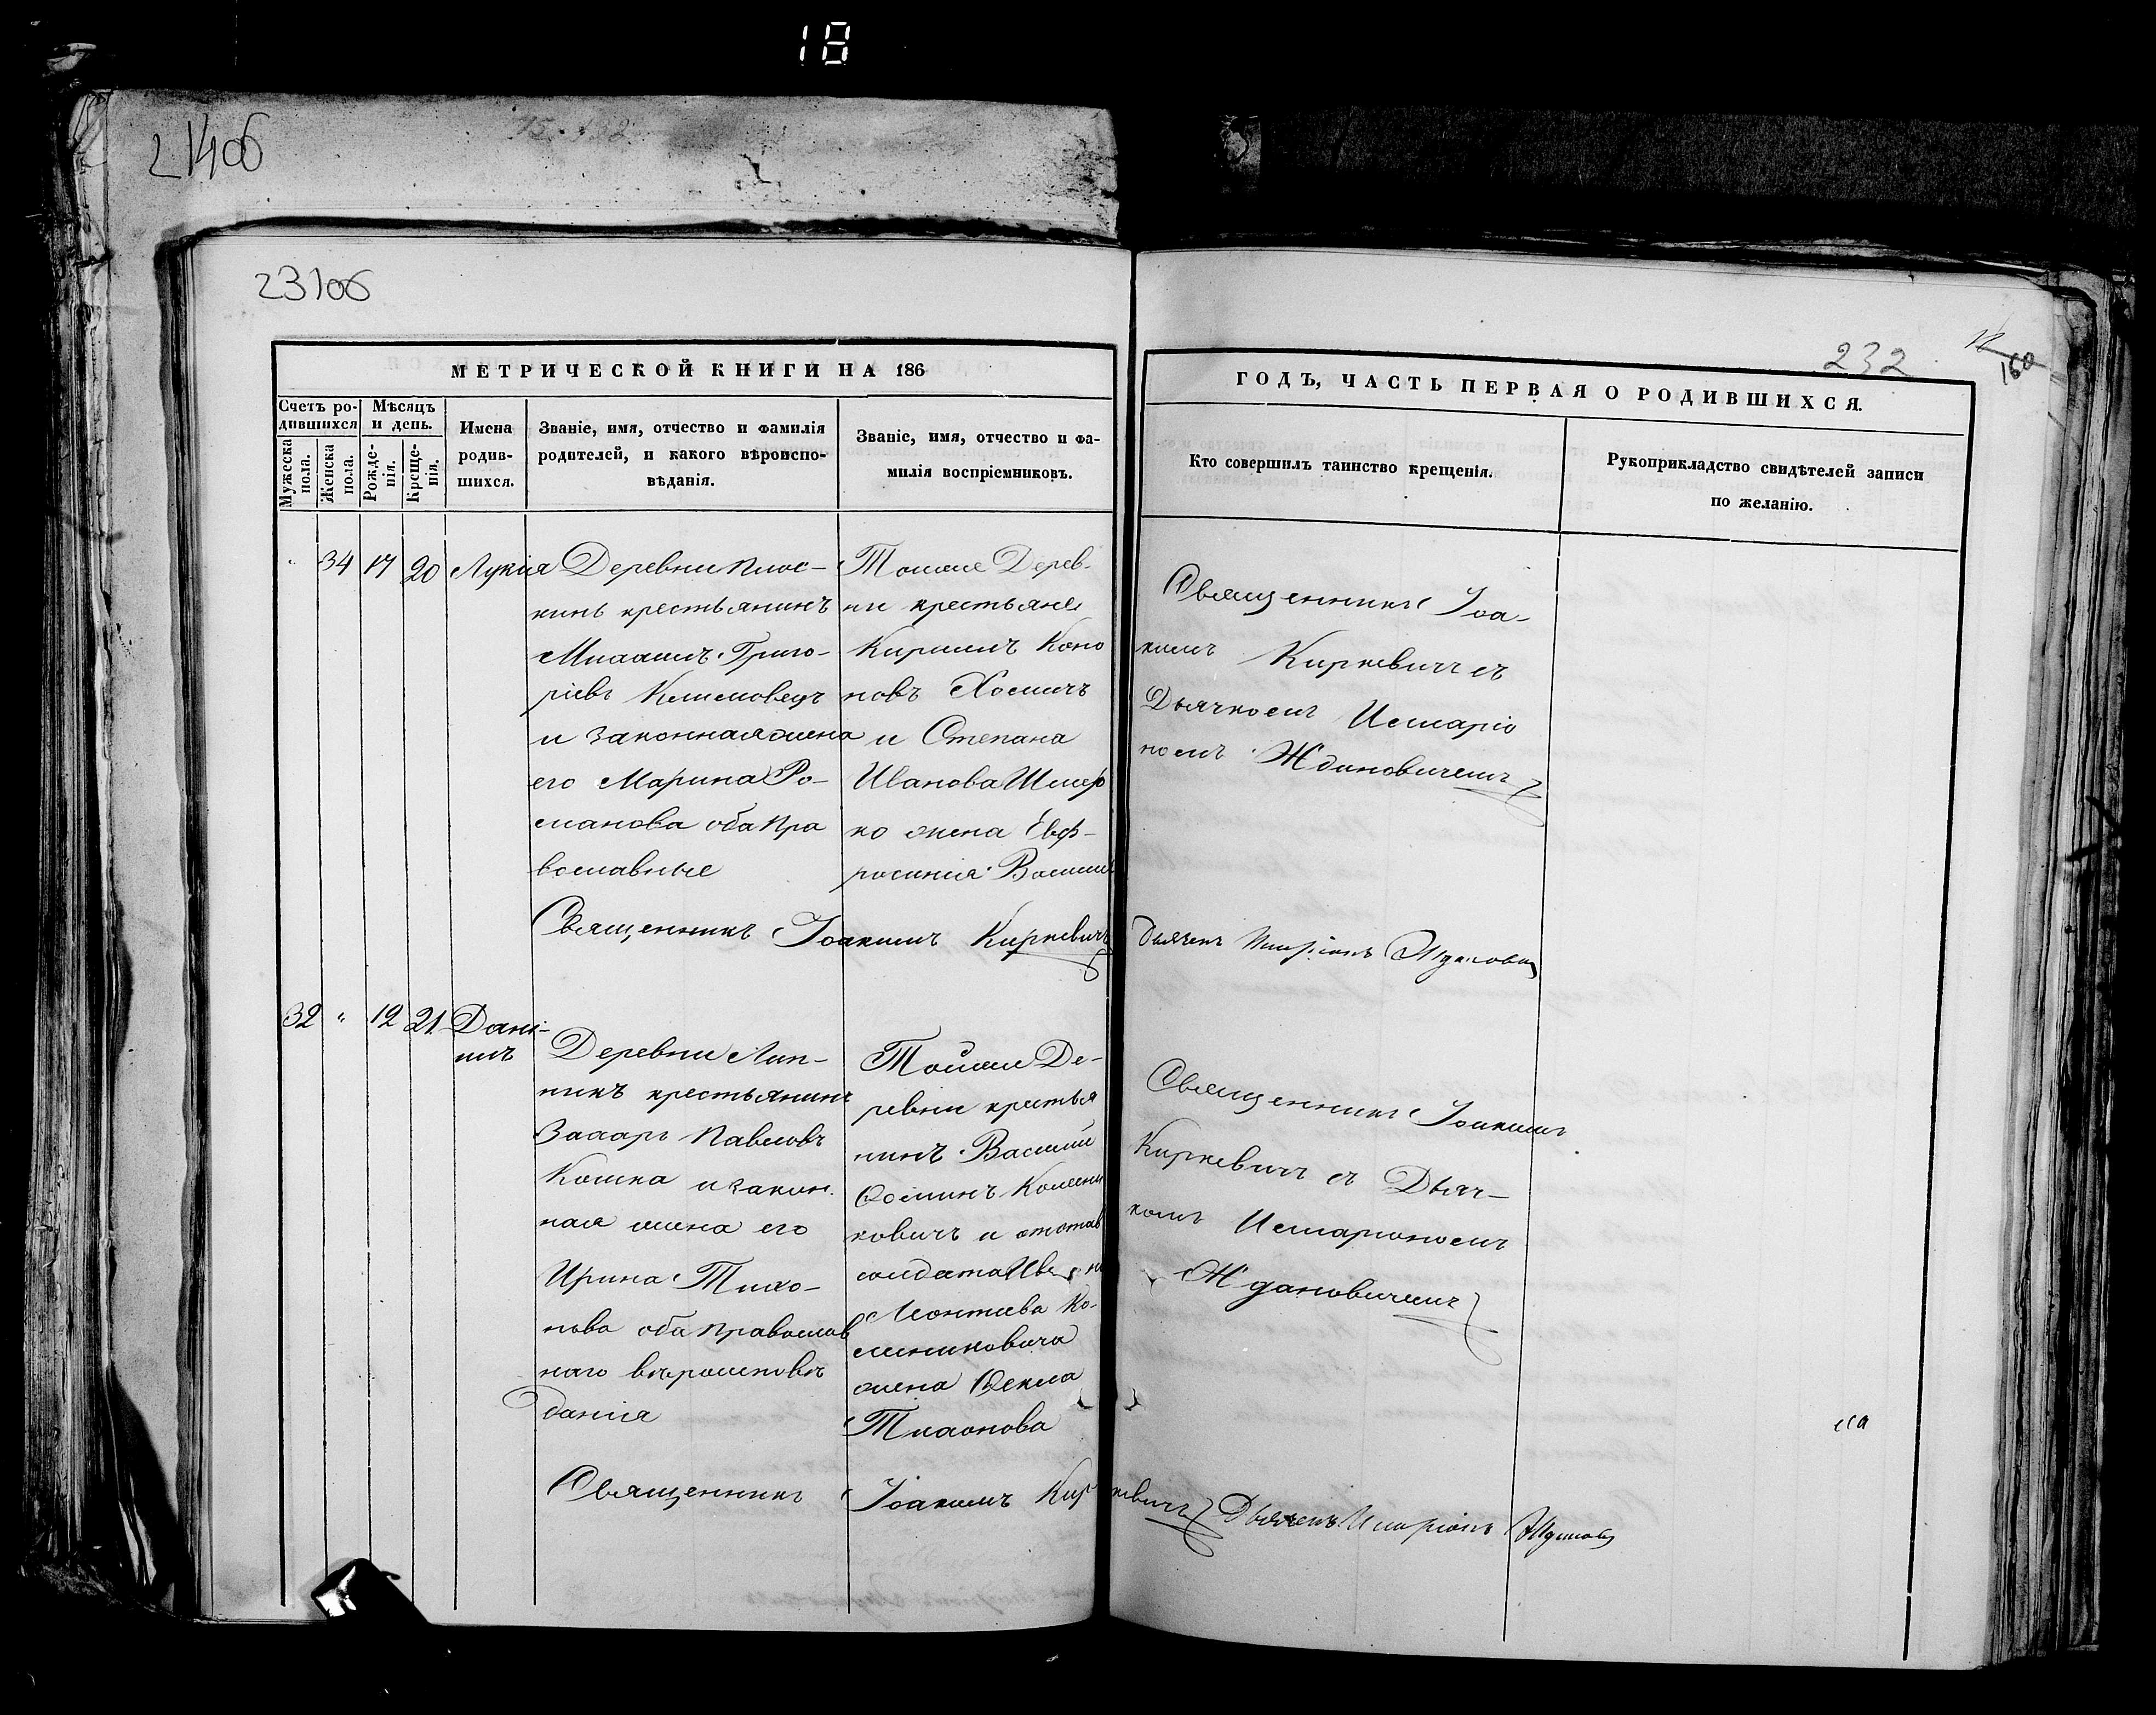 18
21406
231об
232
160
МЕТРИЧЕСКОЙ КНИГИ НА 186
ГОДЪ, ЧАСТЬ ПЕРВАЯ О РОДИВШИХСЯ.
Счетъ ро-
дившихся
Мужеска
пола.
Женска
пола.
Мѣсяцъ
и день.
Рожде-
нія.
Креще-
нія.
Имена
родив-
шихся.
Званіе, имя, отчество и фамилія
родителей, и какого вѣроиспо-
вѣданія.
Званіе, имя, отчество и фа-
милія воспріемниковъ.
Кто совершилъ таинство крещенія.
Рукоприкладство свидѣтелей записи
по желанію.
34 17 20 Лукія
Деревни Плос-
кинь крестьянинъ
Григо-
ріевъ
и законная жена
его Марина Ро-
манова оба пра
вославные
Тойже Дерев-
ни крестьяне
Кирилъ Коно
новъ Хомичъ
и Степана
Иванова Шмар
ко жена Евф-
росинія Васил
Священникъ Іоа-
кимъ Киркевичъ съ
Дьячкомъ Иларіо
номъ Ждановичемъ
Священникъ Іоакимъ Киркевичъ
Дьячекъ Иларіонъ Жданович
32 " 12 21 Дані-
илъ
Деревни Лип-
никъ крестьянинъ
Захаръ Павловъ
Кошка и закон.
ная жена его
Ирина Тихо-
нова оба православ
наго вѣроисповѣ
данія
Тойже Де-
ревни крестья
нинъ Василій
Ѳоминъ
ковичъ и отстав
солдата Ивана
Леонтіева Ко-
жена Ѳекла
Тихонова
Священникъ Іоакимъ
Киркевичъ съ Дьяч-
комъ Иларіономъ
Ждановичемъ
Священникъ Іоакимъ Киркевичъ
Дьячекъ Иларіонъ Жданович